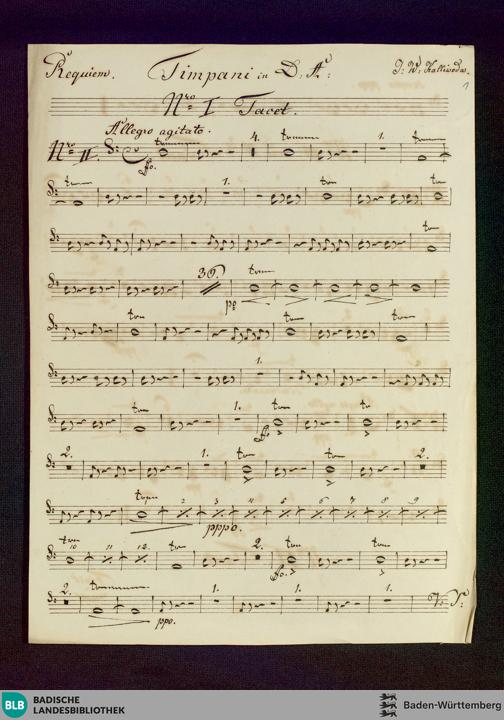 Requiem. Timpani in D, A: J: W: Kalliwoda.
1
Nro I Tacet.
Allegro agitato.
Nro II. fo. 4. 1.
1.
36. pp
1.
1. fo.
2. 1. 2.
2 3 4 5 6 7 8 9 pppo.
10 11 12. 2. fo.
2. ppo. 1. 1. 1. V: S:
BLB BADISCHE LANDESBIBLIOTHEK
Baden-Württemberg